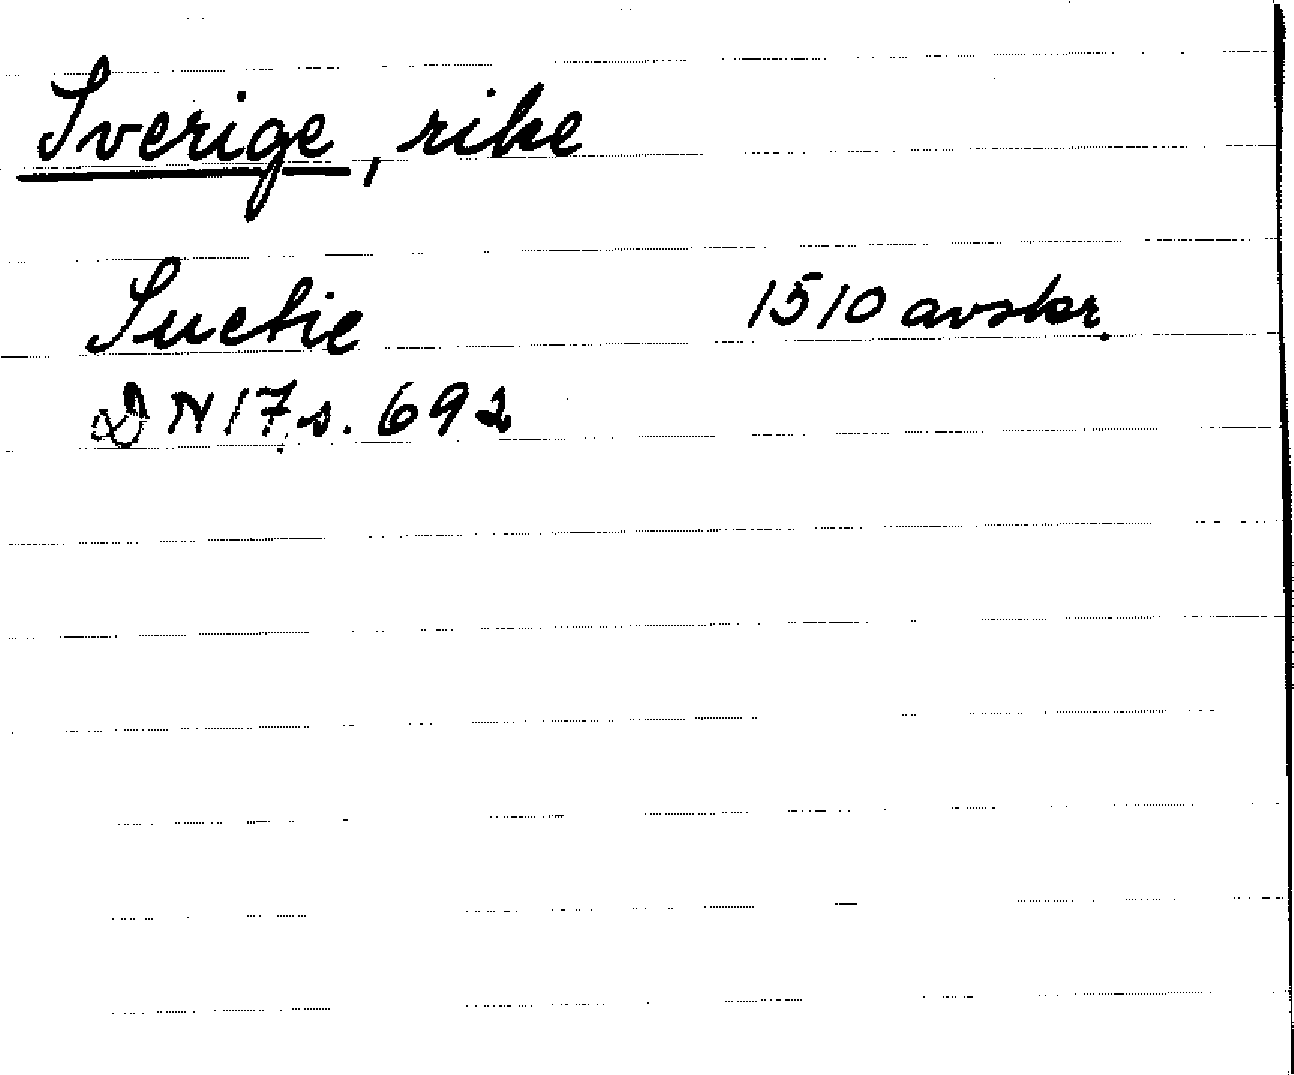 Sverige, rike
Suetie 1510 avskr.
DN 17, s. 692